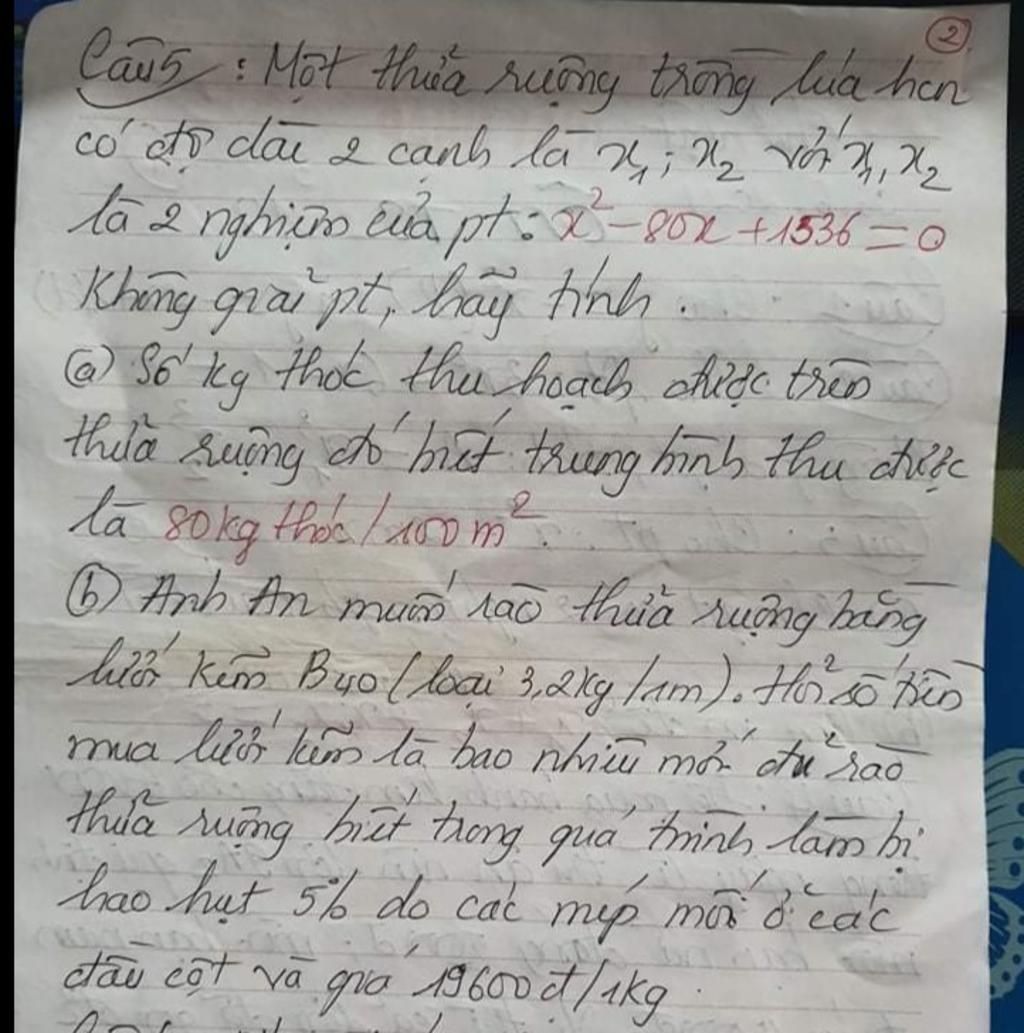 2
Câu 5 : Một thửa ruộng trồng lúa hcn
có độ dài 2 cạnh là x₁; x₂ với x₁, x₂
là 2 nghiệm của pt: x² - 80x + 1536 = 0
Không giải pt, hãy tính.
(a) Số kg thóc thu hoạch được trên
thửa ruộng đó biết trung bình thu được
là 80kg thóc / 100 m².
(b) Anh An muốn rào thửa ruộng bằng
lưới kẽm B40 (loại 3,2kg /1m). Hỏi số tiền
mua lưới kẽm là bao nhiêu mới đủ rào
thửa ruộng biết trong quá trình làm bị
hao hụt 5% do các mép mối ở các
đầu cột và giá 19600đ/1kg.